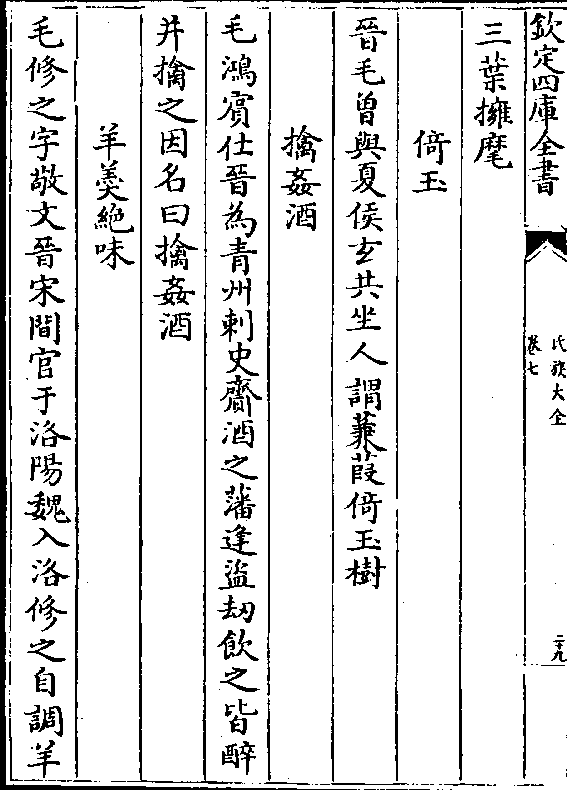 欽定四庫全書
氏族大全
卷七
二十九
三葉擁麾
倚玉
晉毛曾與夏侯玄共坐人謂蒹葭倚玉樹
擒姦酒
毛鴻賔仕晉為青州刺史齎酒之藩逢盜刼飲之皆醉
并擒之因名曰擒姦酒
羊羮絶味
毛修之字敬文晉宋間官于洛陽魏入洛修之自調羊